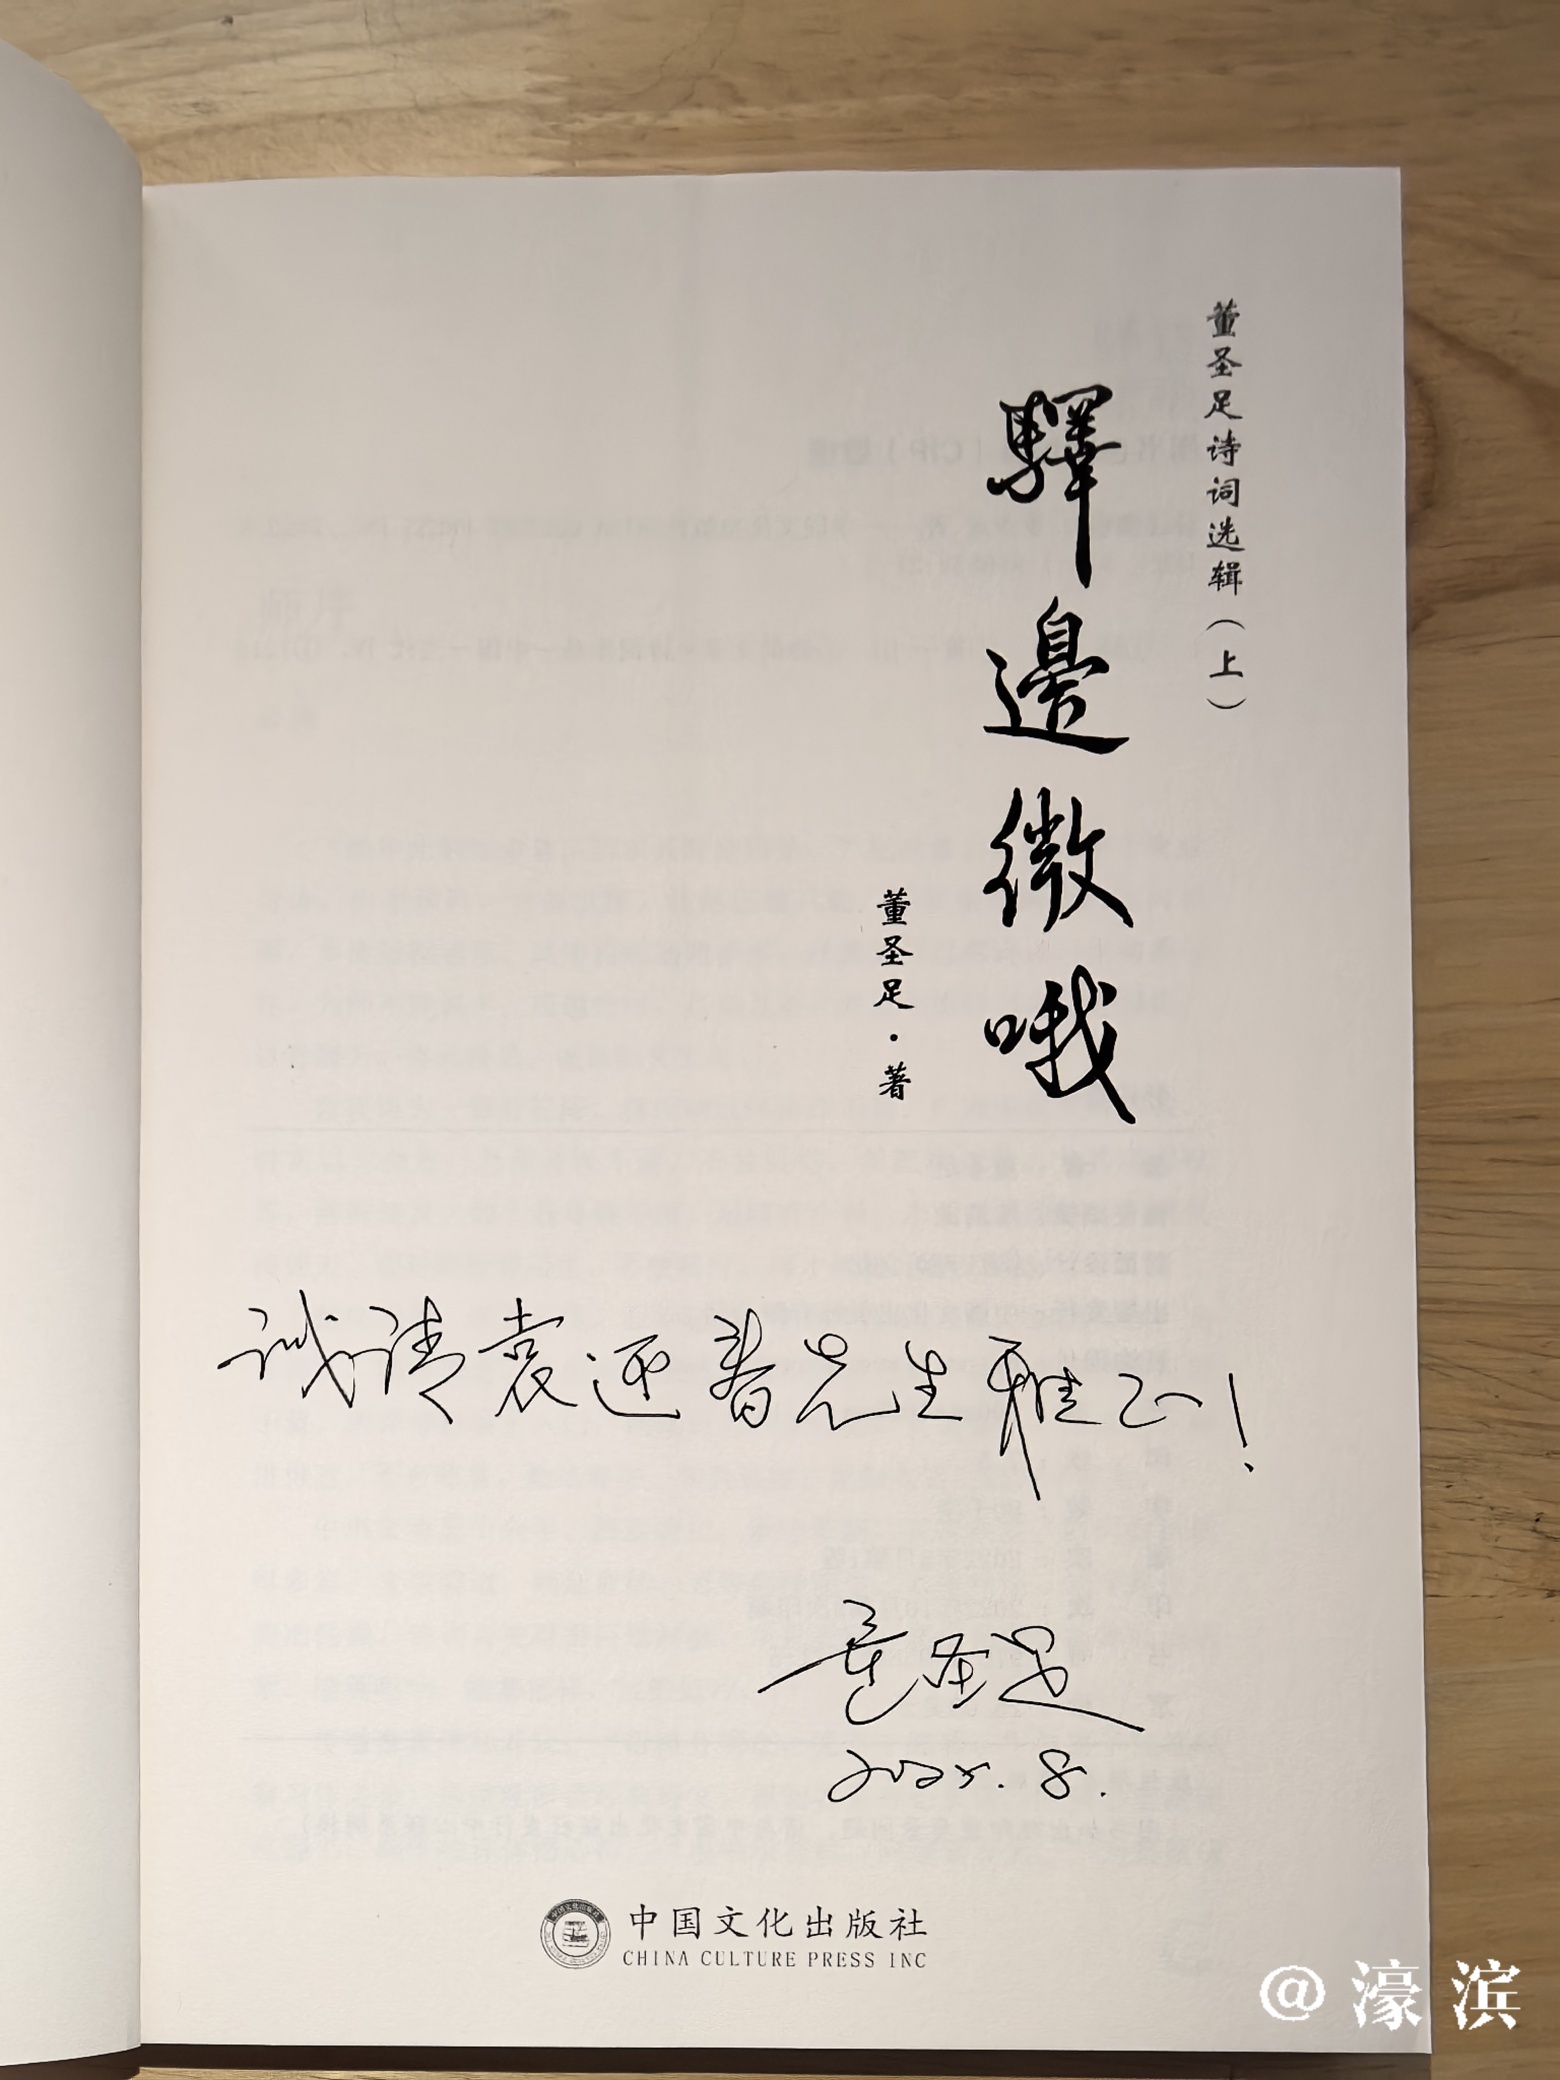 董圣足诗词选辑（上）
驛邊微哦
董圣足·著
诚请袁迎春先生雅正！
董圣足
2025.8.
中国文化出版社
CHINA CULTURE PRESS INC
@濠滨